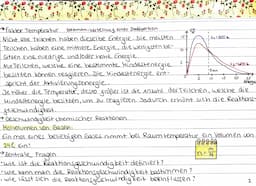 Faktor Temperatur
Nicht alle Teilchen haben dieselbe Energie. Die meisten
Teilchen haben eine mittlere Energie, die wenigsten be-
sitzen eine niedrige und/oder hohe Energie.
Nur Teilchen, welche eine bestimmte Mindestenergie
besitzen können reagieren. Die Mindestenergie ent-
spricht der Aktivierungsenergie.
Je höher die Temperatur, desto größer ist die Anzahl der Teilchen, welche die
Mindestenergie besitzen, um zu reagieren. Dadurch erhöht sich die Reaktions-
geschwindigkeit.
Geschwindigkeit chemischer Reaktionen
Molvolumen von Gasen:
Ein mol eines beliebigen Gases nimmt bei Raumtemperatur ein Volumen von
24L ein!
Zentrale Fragen
wie ist die Reaktionsgeschwindigkeit definiert?
wie kann man die Reaktionsgeschwindigkeit bestimmen?
wie lässt sich die Reaktionsgeschwindigkeit beeinflussen?